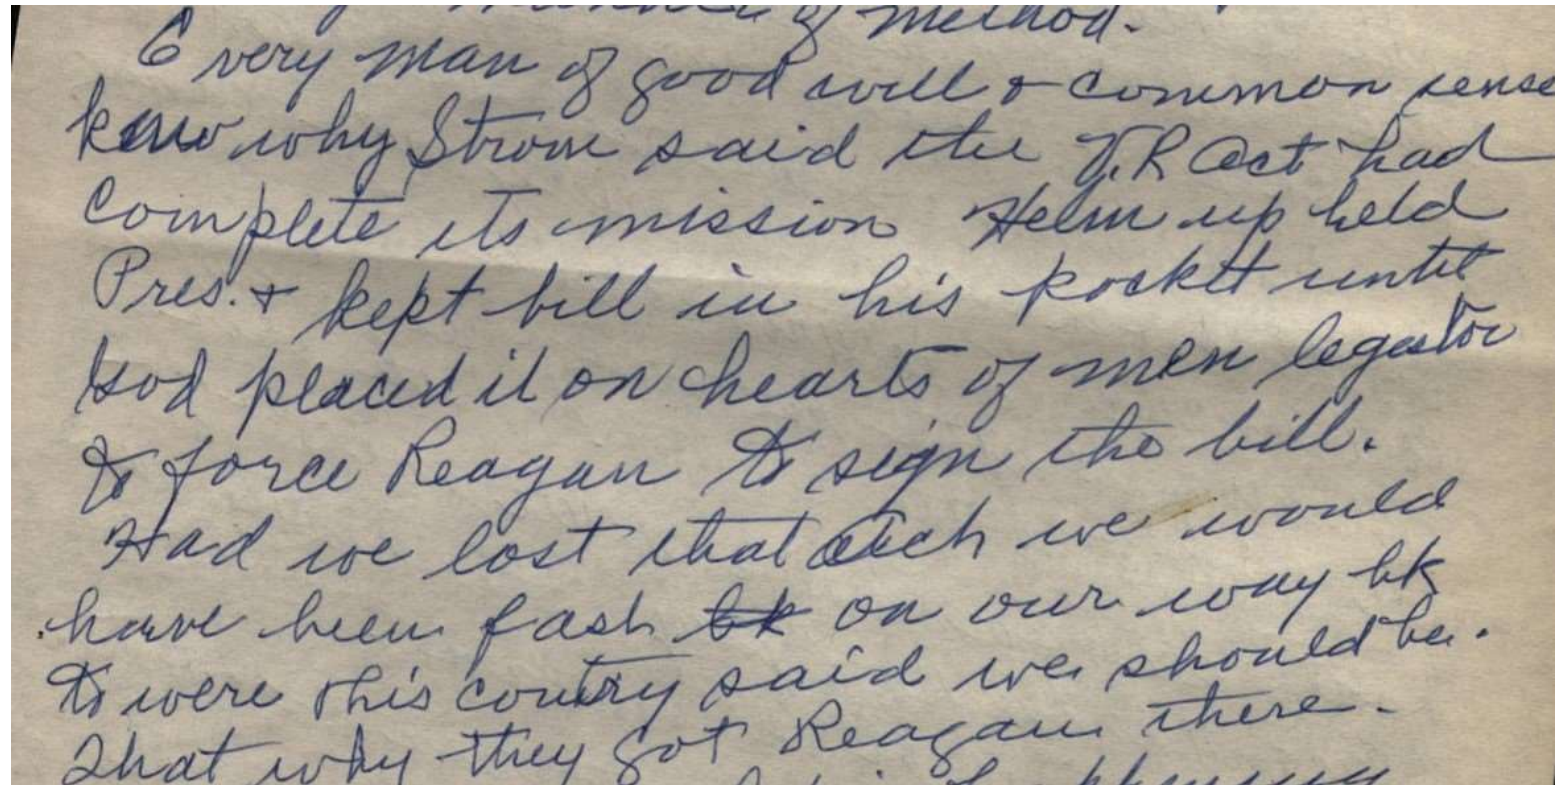 of method.
Every man of good will & common sense
know why Strom said the V.R Act had
complete its mission Helm up held
Pres. & kept bill in his pocket until
God placed it on hearts of men legator
to force Reagan to sign the bill.
Had we lost that we would
have been fash bk on our way bk
to were this coutry said we should be.
That why they got Reagan there.